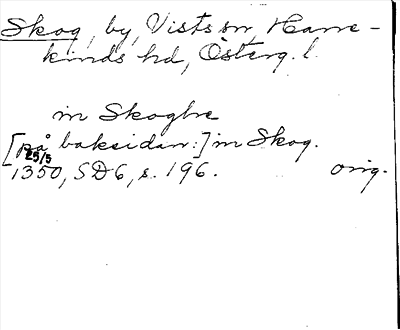 Skog, by, Vists sn, Hane-
kinds hd, Österg. l.
in Skoghe
[på baksidan:] in Skog.
25/5
1350, SD 6, s. 196. orig.